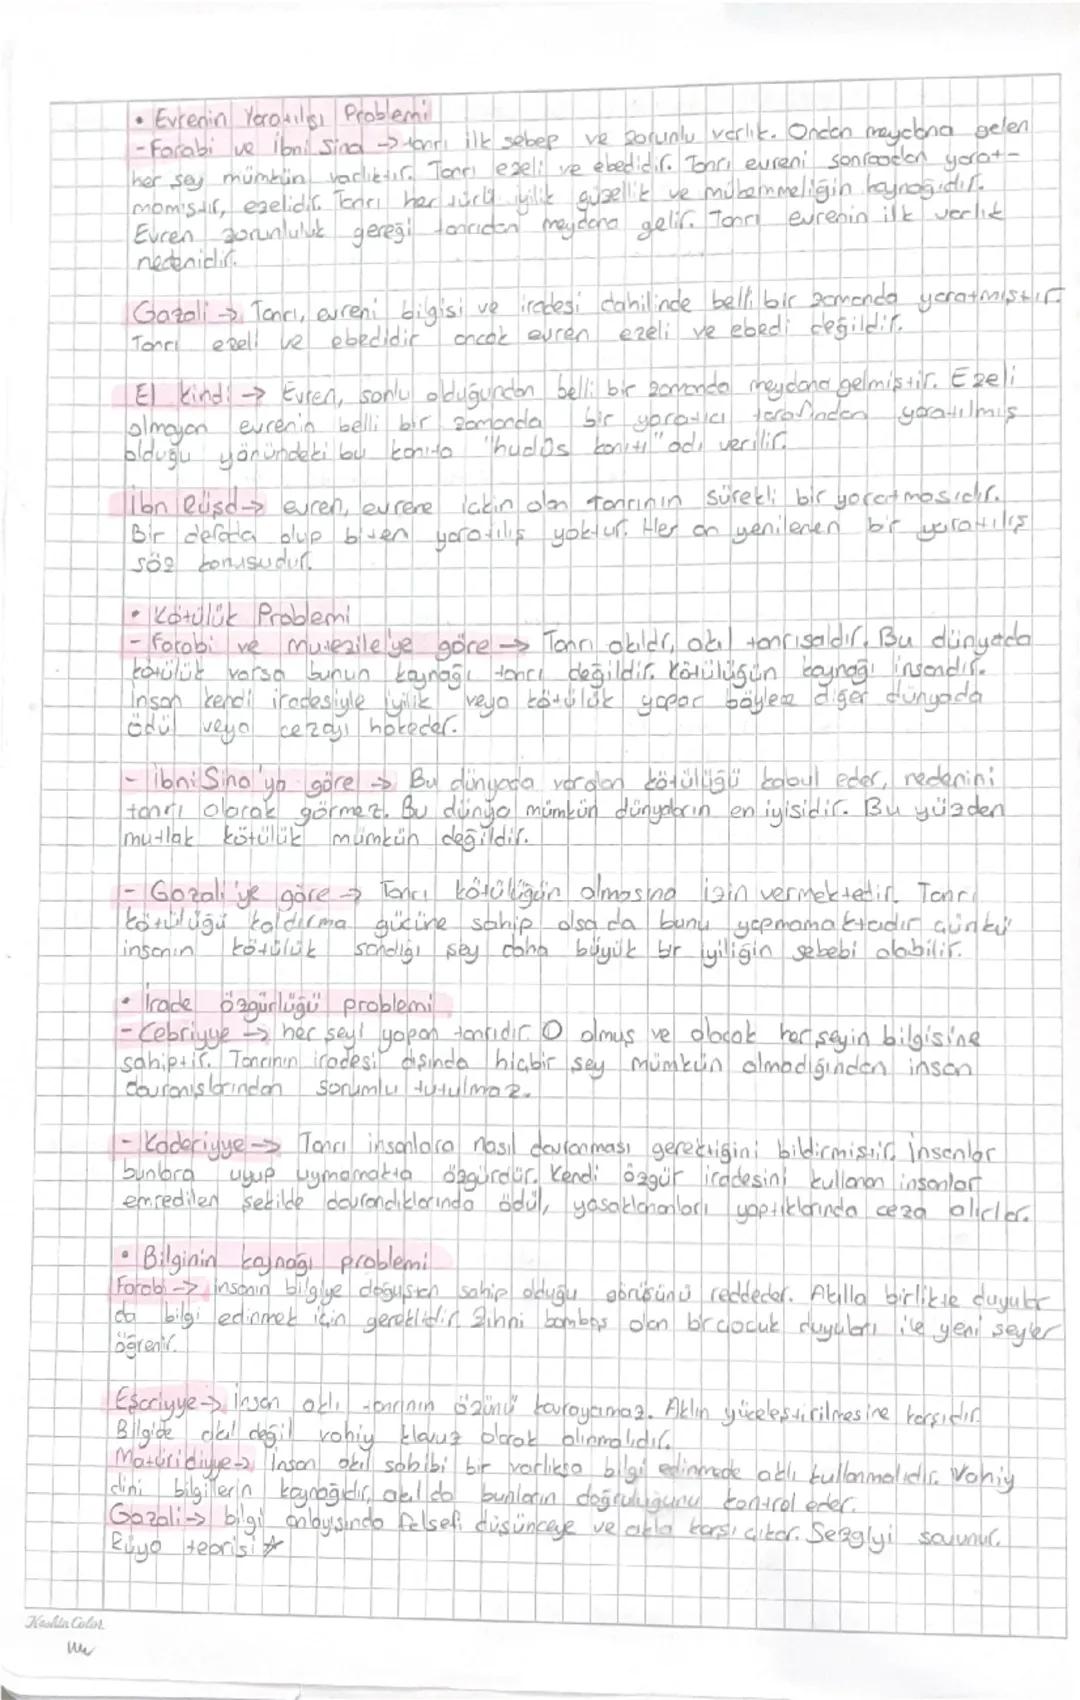 • Evrenin Yaratılışı Problemi
- Farabi ve İbni Sina → tanrı ilk sebep ve zorunlu varlık. Ondan meydana gelen
her şey mümkün varlıktır. Tanrı ezeli ve ebedidir. Tanrı evreni sonradan yarat-
mamıştır, ezelidir. Tanrı her türlü iyilik güzellik ve mükemmeliğin kaynağıdır.
Evren zorunluluk gereği tanrıdan meydana gelir. Tanrı evrenin ilk varlık
nedenidir.
Gazali → Tanrı, evreni bilgisi ve iradesi dahilinde belli bir zamanda yaratmıştır.
Tanrı ezeli ve ebedidir ancak evren ezeli ve ebedi değildir.
El kindi → Evren, sonlu olduğundan belli bir zamanda meydana gelmiştir. Ezeli
olmayan evrenin belli bir zamanda bir yaratıcı tarafından yaratılmış
olduğu yönündeki bu kanıta "hudüs kanıtı" adı verilir.
İbn Rüşd → evren, evrene içkin olan tanrının sürekli bir yaratmasıdır.
Bir defada olup biten yaratılış yoktur. Her an yenilenen bir yaratılış
söz konusudur.
• Kötülük Problemi
- Farabi ve mutezile'ye göre → Tanrı akıldır, akıl tanrısaldır. Bu dünyada
kötülük varsa bunun kaynağı tanrı değildir. Kötülüğün kaynağı insandır.
İnsan kendi iradesiyle iyilik veya kötülük yapar böylece diğer dünyada
ödül veya cezayı hakeder.
- İbni Sina'ya göre → Bu dünyada varolan kötülüğü kabul eder, nedenini
tanrı olarak görmez. Bu dünya mümkün dünyaların en iyisidir. Bu yüzden
mutlak kötülük mümkün değildir.
- Gazali'ye göre → Tanrı kötülüğün olmasına izin vermektedir. Tanrı
kötülüğü kaldırma gücüne sahip olsa da bunu yapmamaktadır çünkü
insanın kötülük sandığı şey daha büyük bir iyiliğin sebebi olabilir.
• İrade özgürlüğü problemi
- Cebriyye → her şeyi yapan tanrıdır. O olmuş ve olacak her şeyin bilgisine
sahiptir. Tanrının iradesi dışında hiçbir şey mümkün olmadığından insan
davranışlarından sorumlu tutulmaz.
- Kaderiyye → Tanrı insanlara nasıl davranması gerektiğini bildirmiştir. İnsanlar
bunlara uyup uymamakta özgürdür. Kendi özgür iradesini kullanan insanlar
emredilen şekilde davrandıklarında ödül, yasaklananları yaptıklarında ceza alırlar.
• Bilginin kaynağı problemi
Farabi → insanın bilgiye doğuştan sahip olduğu görüşünü reddeder. Akılla birlikte duyular
da bilgi edinmek için gereklidir. Zihni bomboş olan bir çocuk duyuları ile yeni şeyler
öğrenir.
Eşariyye → İnsan aklı tanrının özünü kavrayamaz. Aklın yüceleştirilmesine karşıdır.
Bilgide akıl değil vahiy klavuz olarak alınmalıdır.
Matüridiyye → İnsan akıl sahibi bir varlıksa bilgi edinmede aklı kullanmalıdır. Vahiy
dini bilgilerin kaynağıdır, akıl da bunların doğruluğunu kontrol eder.
Gazali → bilgi anlayışında felsefi düşünceye ve akla karşı çıkar. Sezgiyi savunur.
Rüya teorisi ☆
Keskin Color